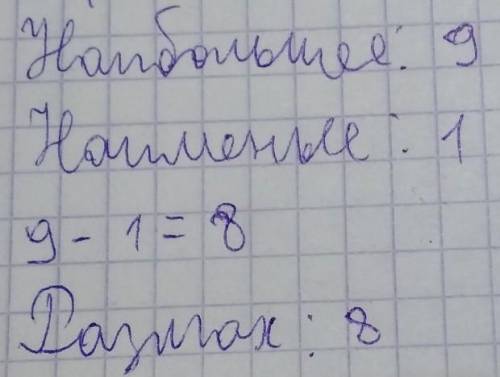 Наибольшее: 9
Наименьшее: 1
9 - 1 = 8
Размах: 8